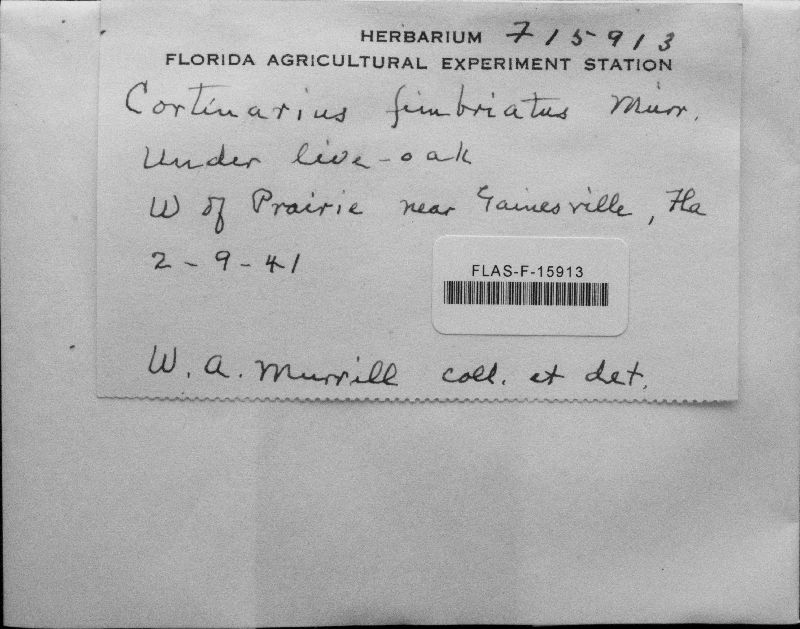 HERBARIUM F15913
FLORIDA AGRICULTURAL EXPERIMENT STATION
Cortinarius fimbriatus Murr.
Under live-oak
W of Prairie near Gainesville, Fla
2-9-41
FLAS-F-15913
W. A. Murrill coll. et det.